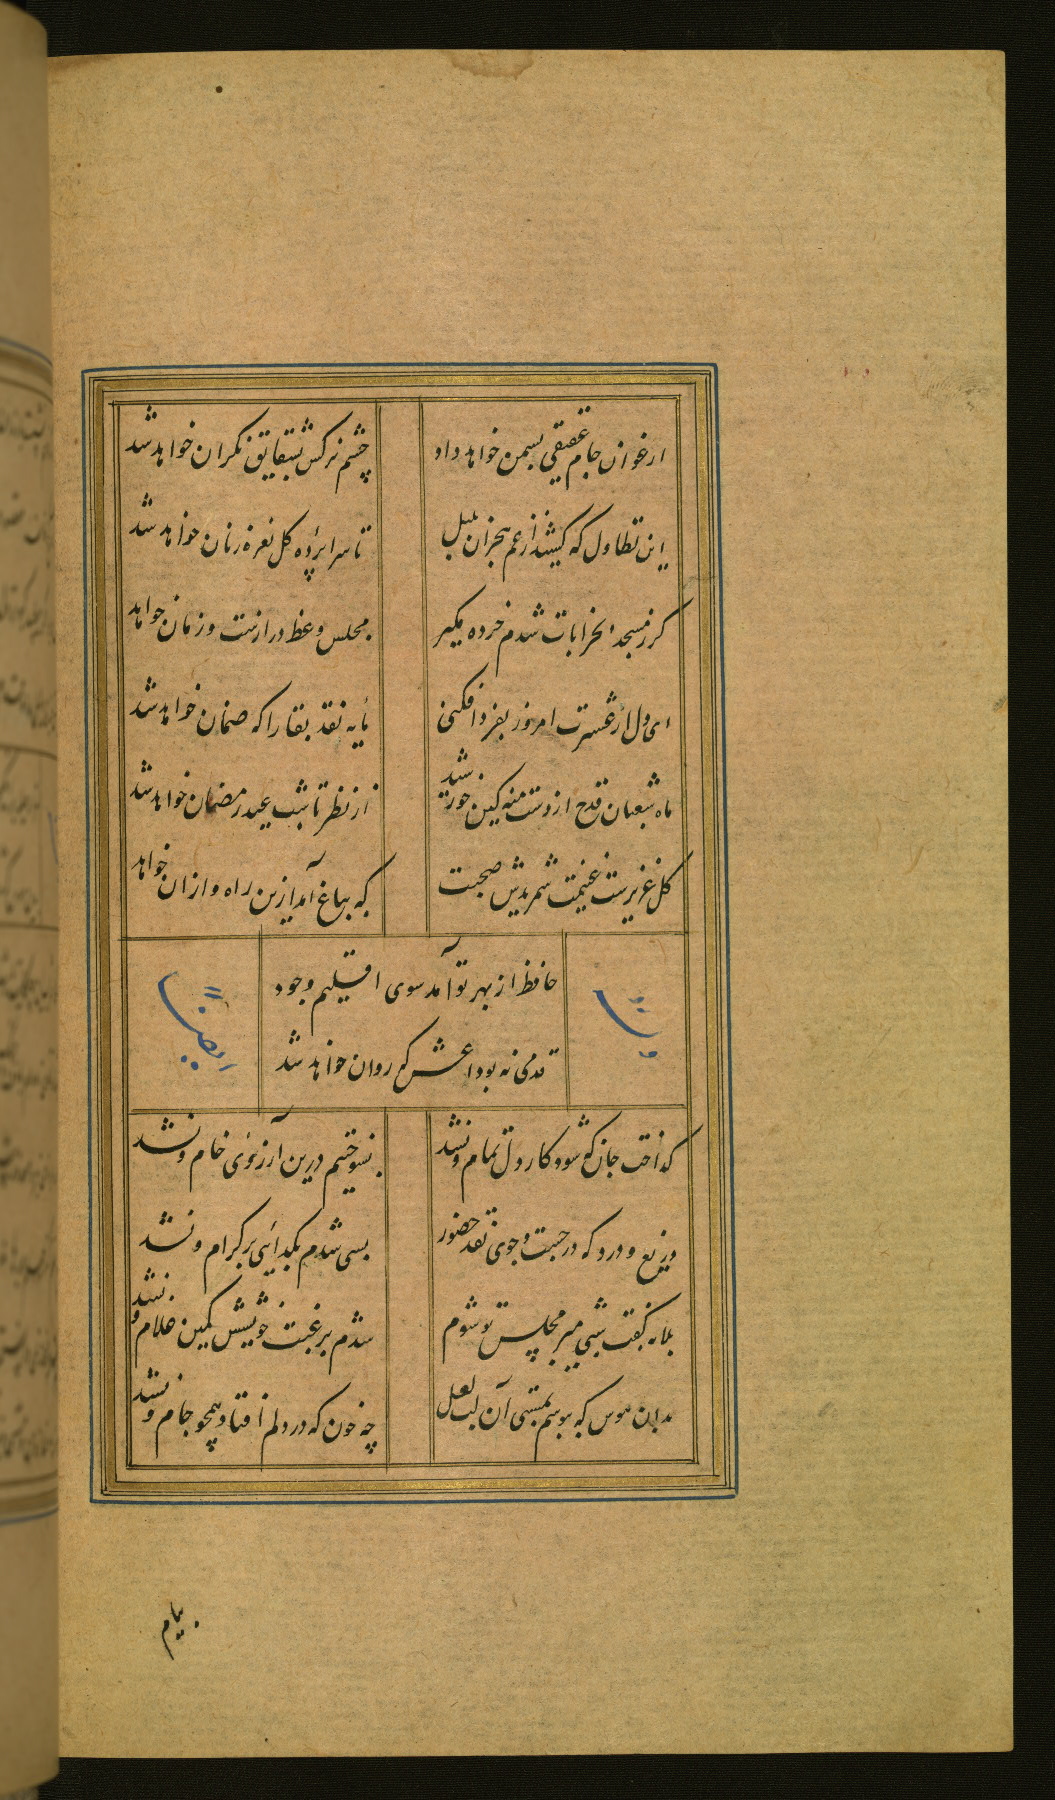 ارغوان جام عقیقی بسمن خواهد داد
چشم نرکس بشقایق نکران خواهد شد
این تطاول که کشید از غم هجران بلبل
تا سراپرده کل نعره زنان خواهد شد
کر ز مسجد بخرابات شدم خرده مکیر
مجلس وعظ درازست و زمان خواهد
ای دل ار عشرت امروز بفردا فکنی
مایه نقد بقا را که ضمان خواهد شد
ماه شعبان قدح از دست منه کین خورشید
از نظر تا شب عید رمضان خواهد شد
کل عزیزست غنیمت شمریدش صحبت
که بباغ آمد ازین راه و ازان خواهد
حافظ از بهر تو آمد سوی اقلیم وجود
قدمی نه بوداعش که روان خواهد شد
وله
ایضا
کداخت جان که شود کار دل تمام و نشد
بسوختیم درین آرزوی خام و نشد
دریغ و درد که در جست و جوی نقد حضور
بسی شدم بکدایی بر کرام و نشد
بلابه کفت شبی میر مجلس تو شوم
شدم برغبت خویشش کمین غلام و نشد
بدان هوس که ببوسم بمستی آن لب لعل
چه خون که در دلم افتاد همچو جام و نشد
پیام